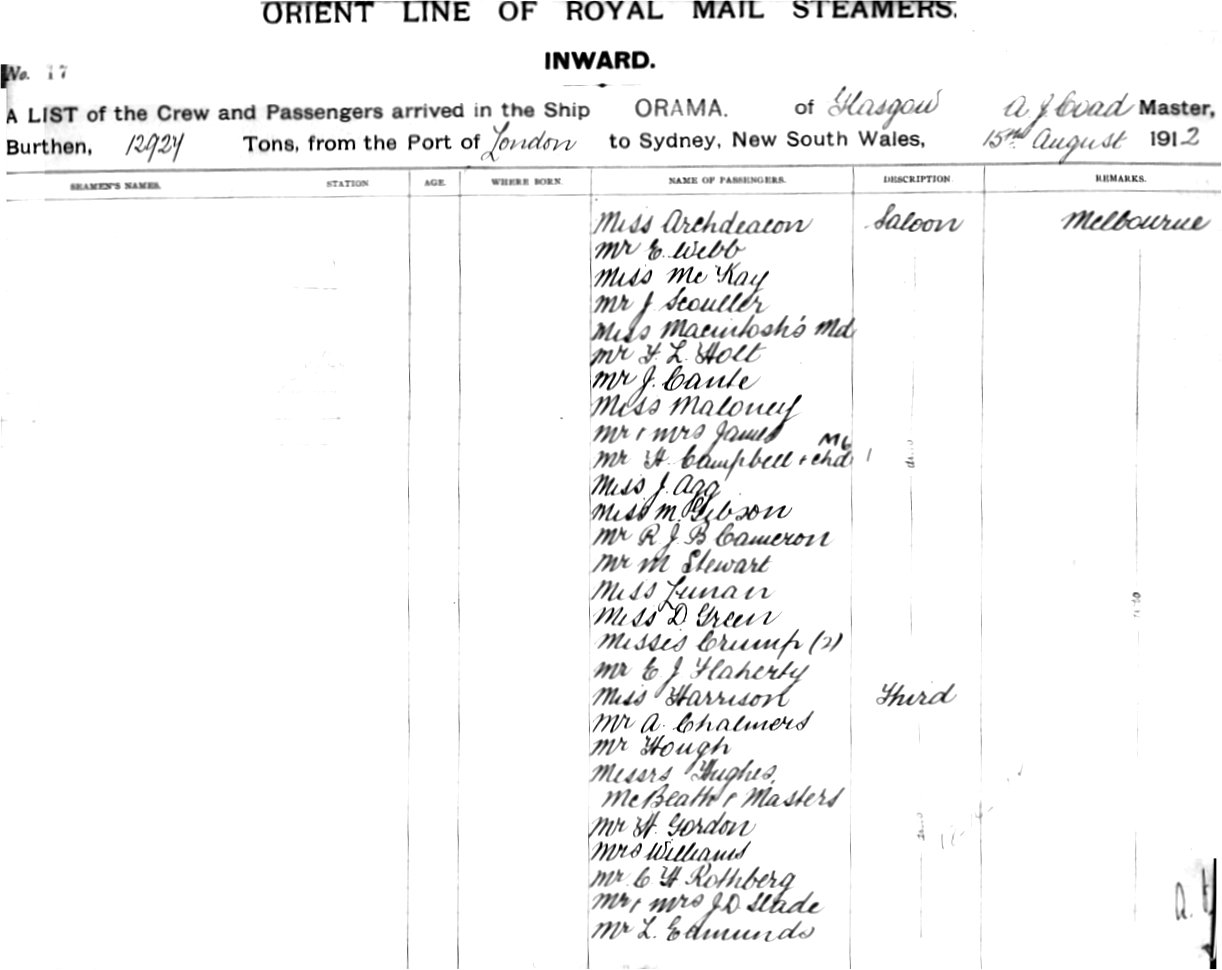 ORIENT LINE OF ROYAL MAIL STEAMERS.
INWARD.
No. 17
A LIST of the Crew and Passengers arrived in the Ship ORAMA. of Glasgow A J Coad Master,
Burthen, 12927 Tons, from the Port of London to Sydney, New South Wales, 15th August 1912
SEAMEN'S NAMES. STATION AGE. WHERE BORN. NAME OF PASSENGERS. DESCRIPTION. REMARKS.
Miss Archdeacon Saloon Melbourne
Mr E. Webb
Miss McKay
Mr J Scouller
Miss Macintosh's Md
Mr F. L. Holt
Mr J. Cante
Miss Maloney
Mr & Mrs James
Mr H Campbell + chd 1
Miss J. Agg
Miss M. Gibson
Mr R. J. B Cameron
Mr M Stewart
Miss Lunan
Miss D Green
Misses Crump (2)
Mr E J Flaherty
Miss Harrison Third
Mr A. Chalmers
Mr Hough
Messrs Hughes,
McBeath & Masters
Mr H. Gordon
Mrs Williams
Mr C H Rothberg
Mr & Mrs J D Slade
Mr L. Edmunds